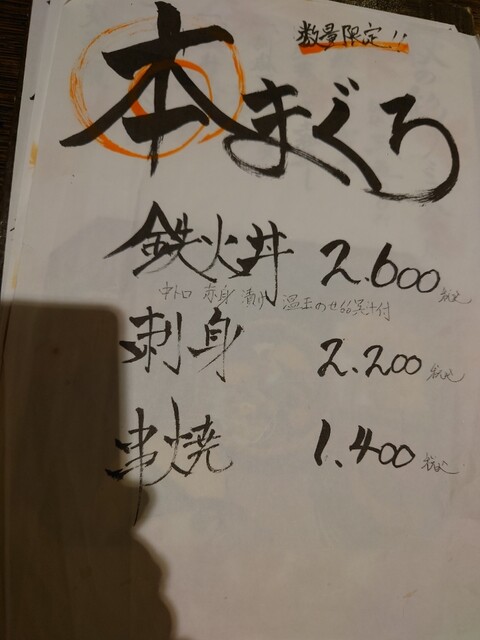 数量限定!!
本まぐろ
鉄火丼 2.600 税込
中トロ 赤身 漬け 温玉のせ 汁付
刺身 2.200 税込
串焼 1.400 税込